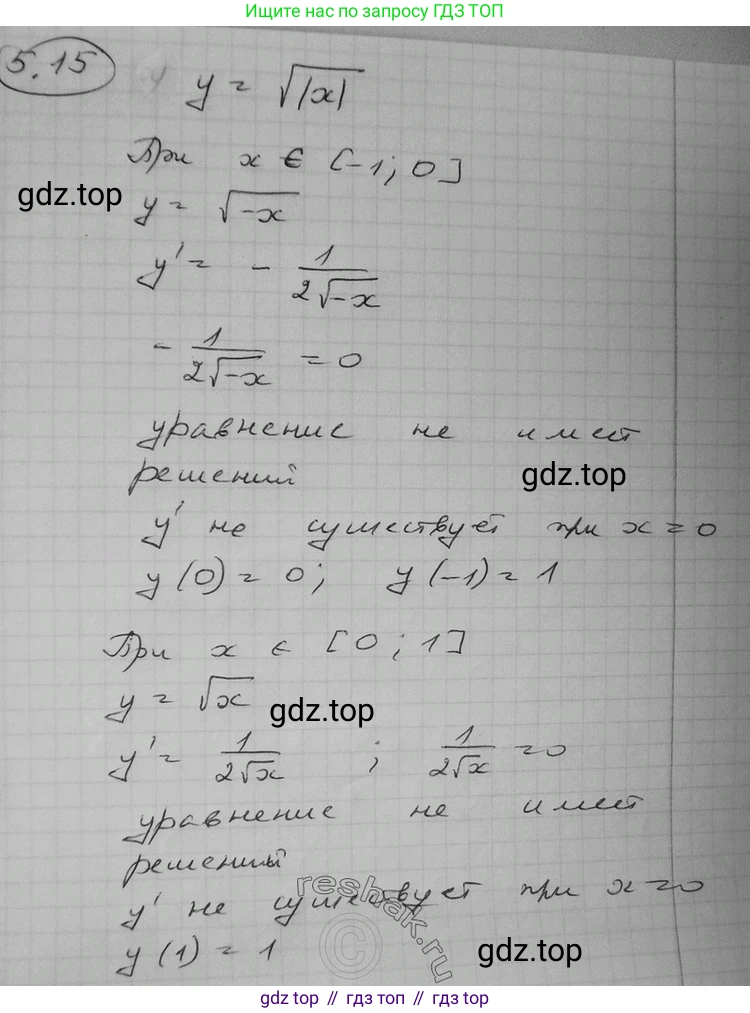 Ищите нас по запросу ГДЗ ТОП
5.15
y = √|x|
При x ∈ [-1; 0]
gdz.top
y = √-x
y' = - 1/2√-x
- 1/2√-x = 0
уравнение не имеет
решений
gdz.top
y' не существует при x = 0
y(0) = 0; y(-1) = 1
При x ∈ [0; 1]
y = √x
gdz.top
y' = 1/2√x ; 1/2√x = 0
уравнение не имеет
решений
y' не существует при x = 0
reshak.ru
©
y(1) = 1
gdz.top
gdz top // гдз топ // gdz top